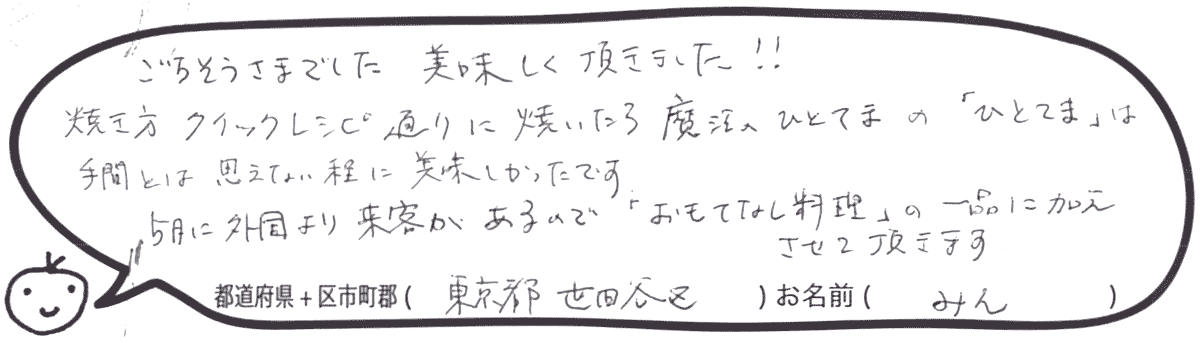 ごちそうさまでした 美味しく頂きました!!
焼き方 クイックレシピ通りに焼いたら魔法のひとてまの「ひとてま」は
手間とは思えない程に美味しかったです
5月に外国より来客があるので「おもてなし料理」の一品に加え
させて頂きます
都道府県+区市町郡( 東京都 世田谷区 )お名前( みん )